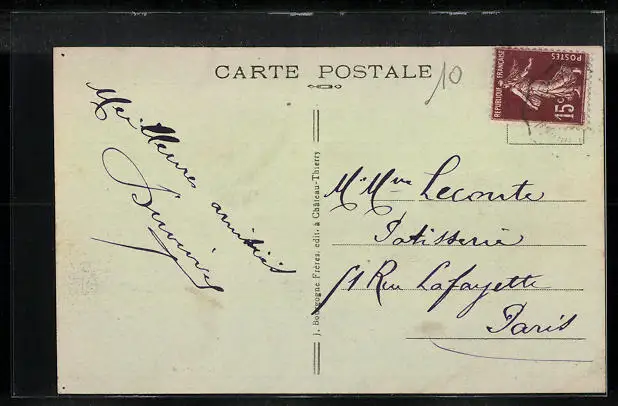 CARTE POSTALE
10
REPUBLIQUE FRANÇAISE
POSTES
15c
Meilleures amitiés
J. Bourgogne Frères, édit. à Château-Thierry
M. Mme Lecomte
Patisserie
51 Rue Lafayette
Paris